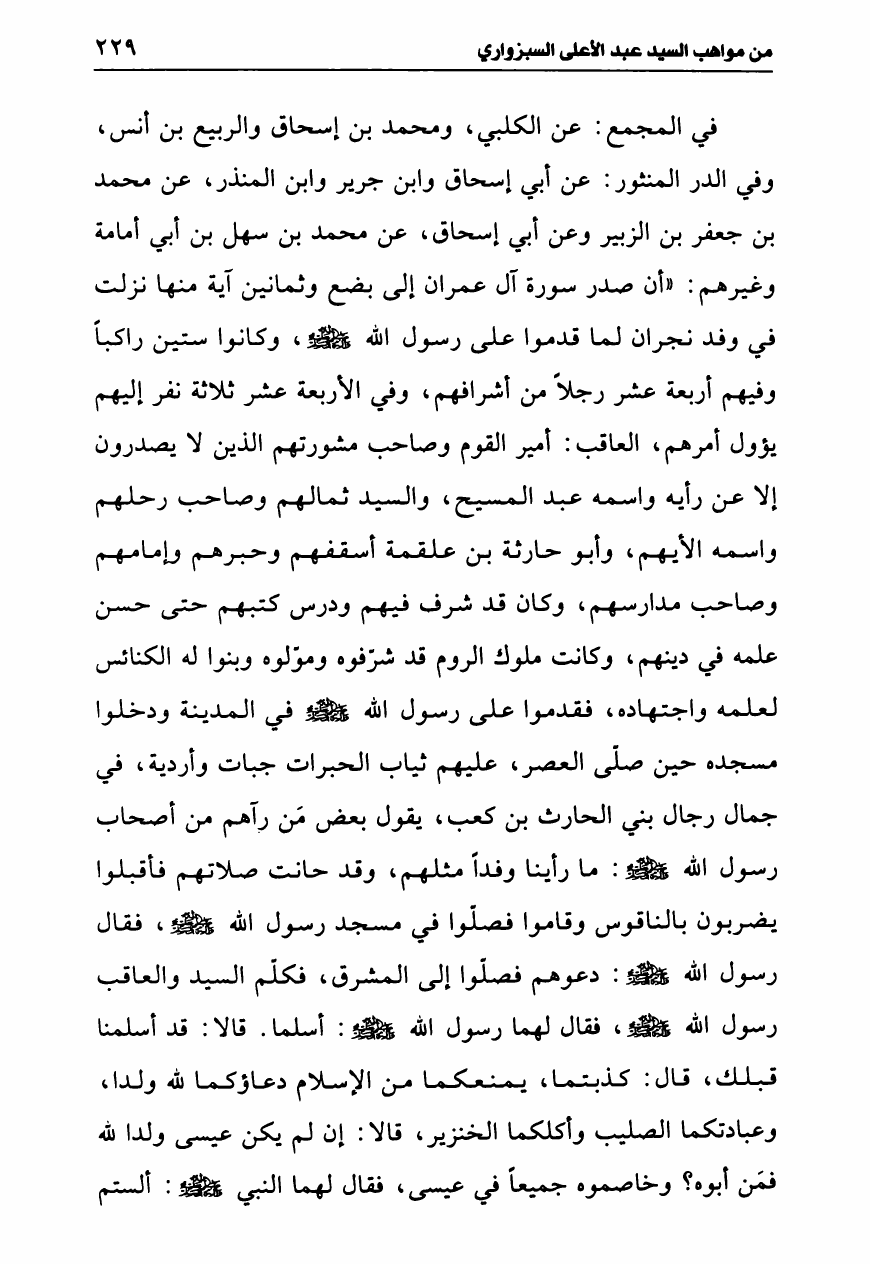 من مواهب السيد عبد الأعلى السبزواري ٢٢٩
في المجمع: عن الكلبي، ومحمد بن إسحاق والربيع بن أنس،
وفي الدر المنثور: عن أبي إسحاق وابن جرير وابن المنذر، عن محمد
بن جعفر بن الزبير وعن أبي إسحاق، عن محمد بن سهل بن أبي أمامة
وغيرهم: «أن صدر سورة آل عمران إلى بضع وثمانين آية منها نزلت
في وفد نجران لما قدموا على رسول الله ﷺ، وكانوا ستين راكباً
وفيهم أربعة عشر رجلاً من أشرافهم، وفي الأربعة عشر ثلاثة نفر إليهم
يؤول أمرهم، العاقب: أمير القوم وصاحب مشورتهم الذين لا يصدرون
إلا عن رأيه واسمه عبد المسيح، والسيد ثمالهم وصاحب رحلهم
واسمه الأيهم، وأبو حارثة بن علقمة أسقفهم وحبرهم وإمامهم
وصاحب مدارسهم، وكان قد شرف فيهم ودرس كتبهم حتى حسن
علمه في دينهم، وكانت ملوك الروم قد شرّفوه وموّلوه وبنوا له الكنائس
لعلمه واجتهاده، فقدموا على رسول الله ﷺ في المدينة ودخلوا
مسجده حين صلّى العصر، عليهم ثياب الحبرات جبات وأردية، في
جمال رجال بني الحارث بن كعب، يقول بعض مَن رآهم من أصحاب
رسول الله ﷺ: ما رأينا وفداً مثلهم، وقد حانت صلاتهم فأقبلوا
يضربون بالناقوس وقاموا فصلّوا في مسجد رسول الله ﷺ، فقال
رسول الله ﷺ: دعوهم فصلّوا إلى المشرق، فكلّم السيد والعاقب
رسول الله ﷺ، فقال لهما رسول الله ﷺ: أسلما. قالا: قد أسلمنا
قبلك، قال: كذبتما، يمنعكما من الإسلام دعاؤكما لله ولدا،
وعبادتكما الصليب وأكلكما الخنزير، قالا: إن لم يكن عيسى ولدا لله
فمَن أبوه؟ وخاصموه جميعاً في عيسى، فقال لهما النبي ﷺ: ألستم